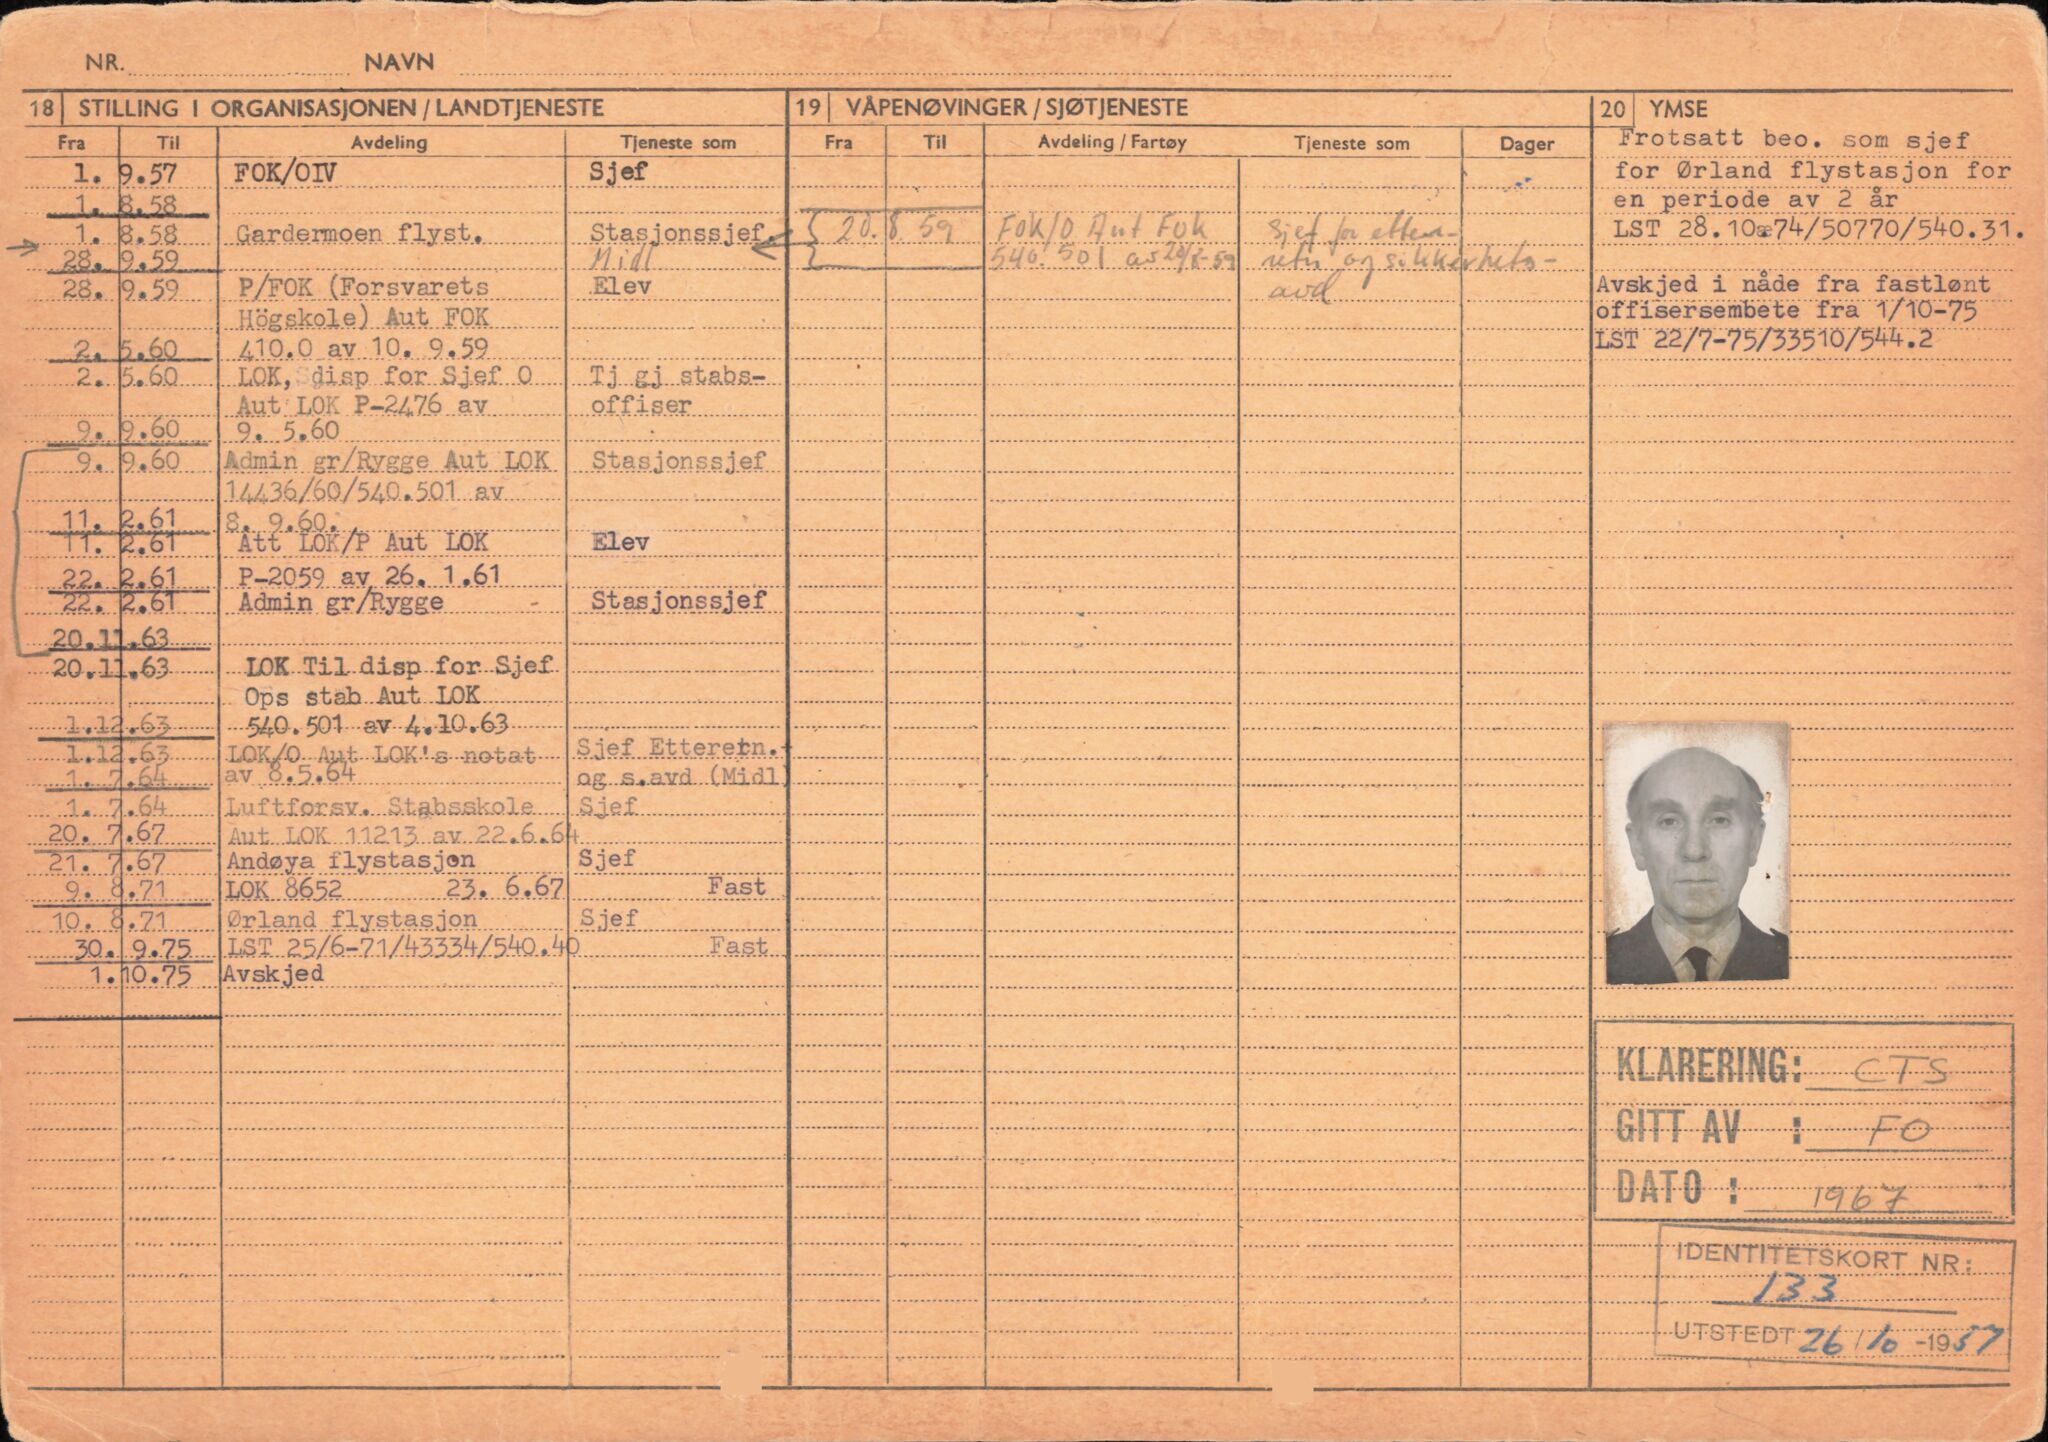 NR. NAVN
18 STILLING I ORGANISASJONEN / LANDTJENESTE
Fra Til Avdeling Tjeneste som
1. 9.57 FOK/OIV Sjef
1. 8.58
1. 8.58 Gardermoen flyst. Stasjonssjef
28. 9.59 Midl
28. 9.59 P/FOK (Forsvarets Elev
Högskole) Aut FOK
2. 5.60 410.0 av 10. 9.59
2. 5.60 LOK, disp for Sjef O Tj gj stabs-
Aut LOK P-2476 av offiser
9. 9.60 9. 5.60
9. 9.60 Admin gr/Rygge Aut LOK Stasjonssjef
14436/60/540.501 av
11. 2.61 8. 9.60.
11. 2.61 Att LOK/P Aut LOK Elev
22. 2.61 P-2059 av 26. 1.61
22. 2.61 Admin gr/Rygge - Stasjonssjef
20.11.63
20.11.63 LOK Til disp for Sjef
Ops stab Aut LOK
1.12.63 540.501 av 4.10.63
1.12.63 LOK/O Aut LOK's notat Sjef Etteretn.-
1. 7.64 av 8.5.64 og s.avd (Midl)
1. 7.64 Luftforsv. Stabsskole Sjef
20. 7.67 Aut LOK 11213 av 22.6.64
21. 7.67 Andøya flystasjon Sjef
9. 8.71 LOK 8652 23. 6.67 Fast
10. 8.71 Ørland flystasjon Sjef
30. 9.75 LST 25/6-71/43334/540.40 Fast
1.10.75 Avskjed
19 VÅPENØVINGER / SJØTJENESTE
Fra Til Avdeling / Fartøy Tjeneste som Dager
20. 8. 59 FOK/O Aut FOK Sjef for etter-
540. 501 av 20/8-59 retn og sikkerhets-
avd
20 YMSE
Frotsatt beo. som sjef
for Ørland flystasjon for
en periode av 2 år
LST 28.10 74/50770/540.31.
Avskjed i nåde fra fastlønt
offisersembete fra 1/10-75
LST 22/7-75/33510/544.2
KLARERING: CTS
GITT AV : FO
DATO : 1967
IDENTITETSKORT NR:
133
UTSTEDT 26/10-1957